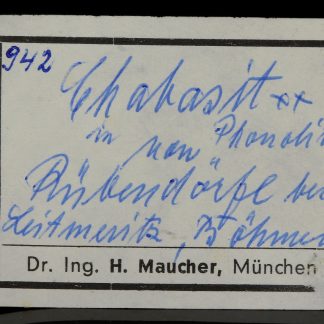 942
Chabasit xx
in Phonoli
von
Rübendörfl be
Leitmeritz, Böhmen
Dr. Ing. H. Maucher, München